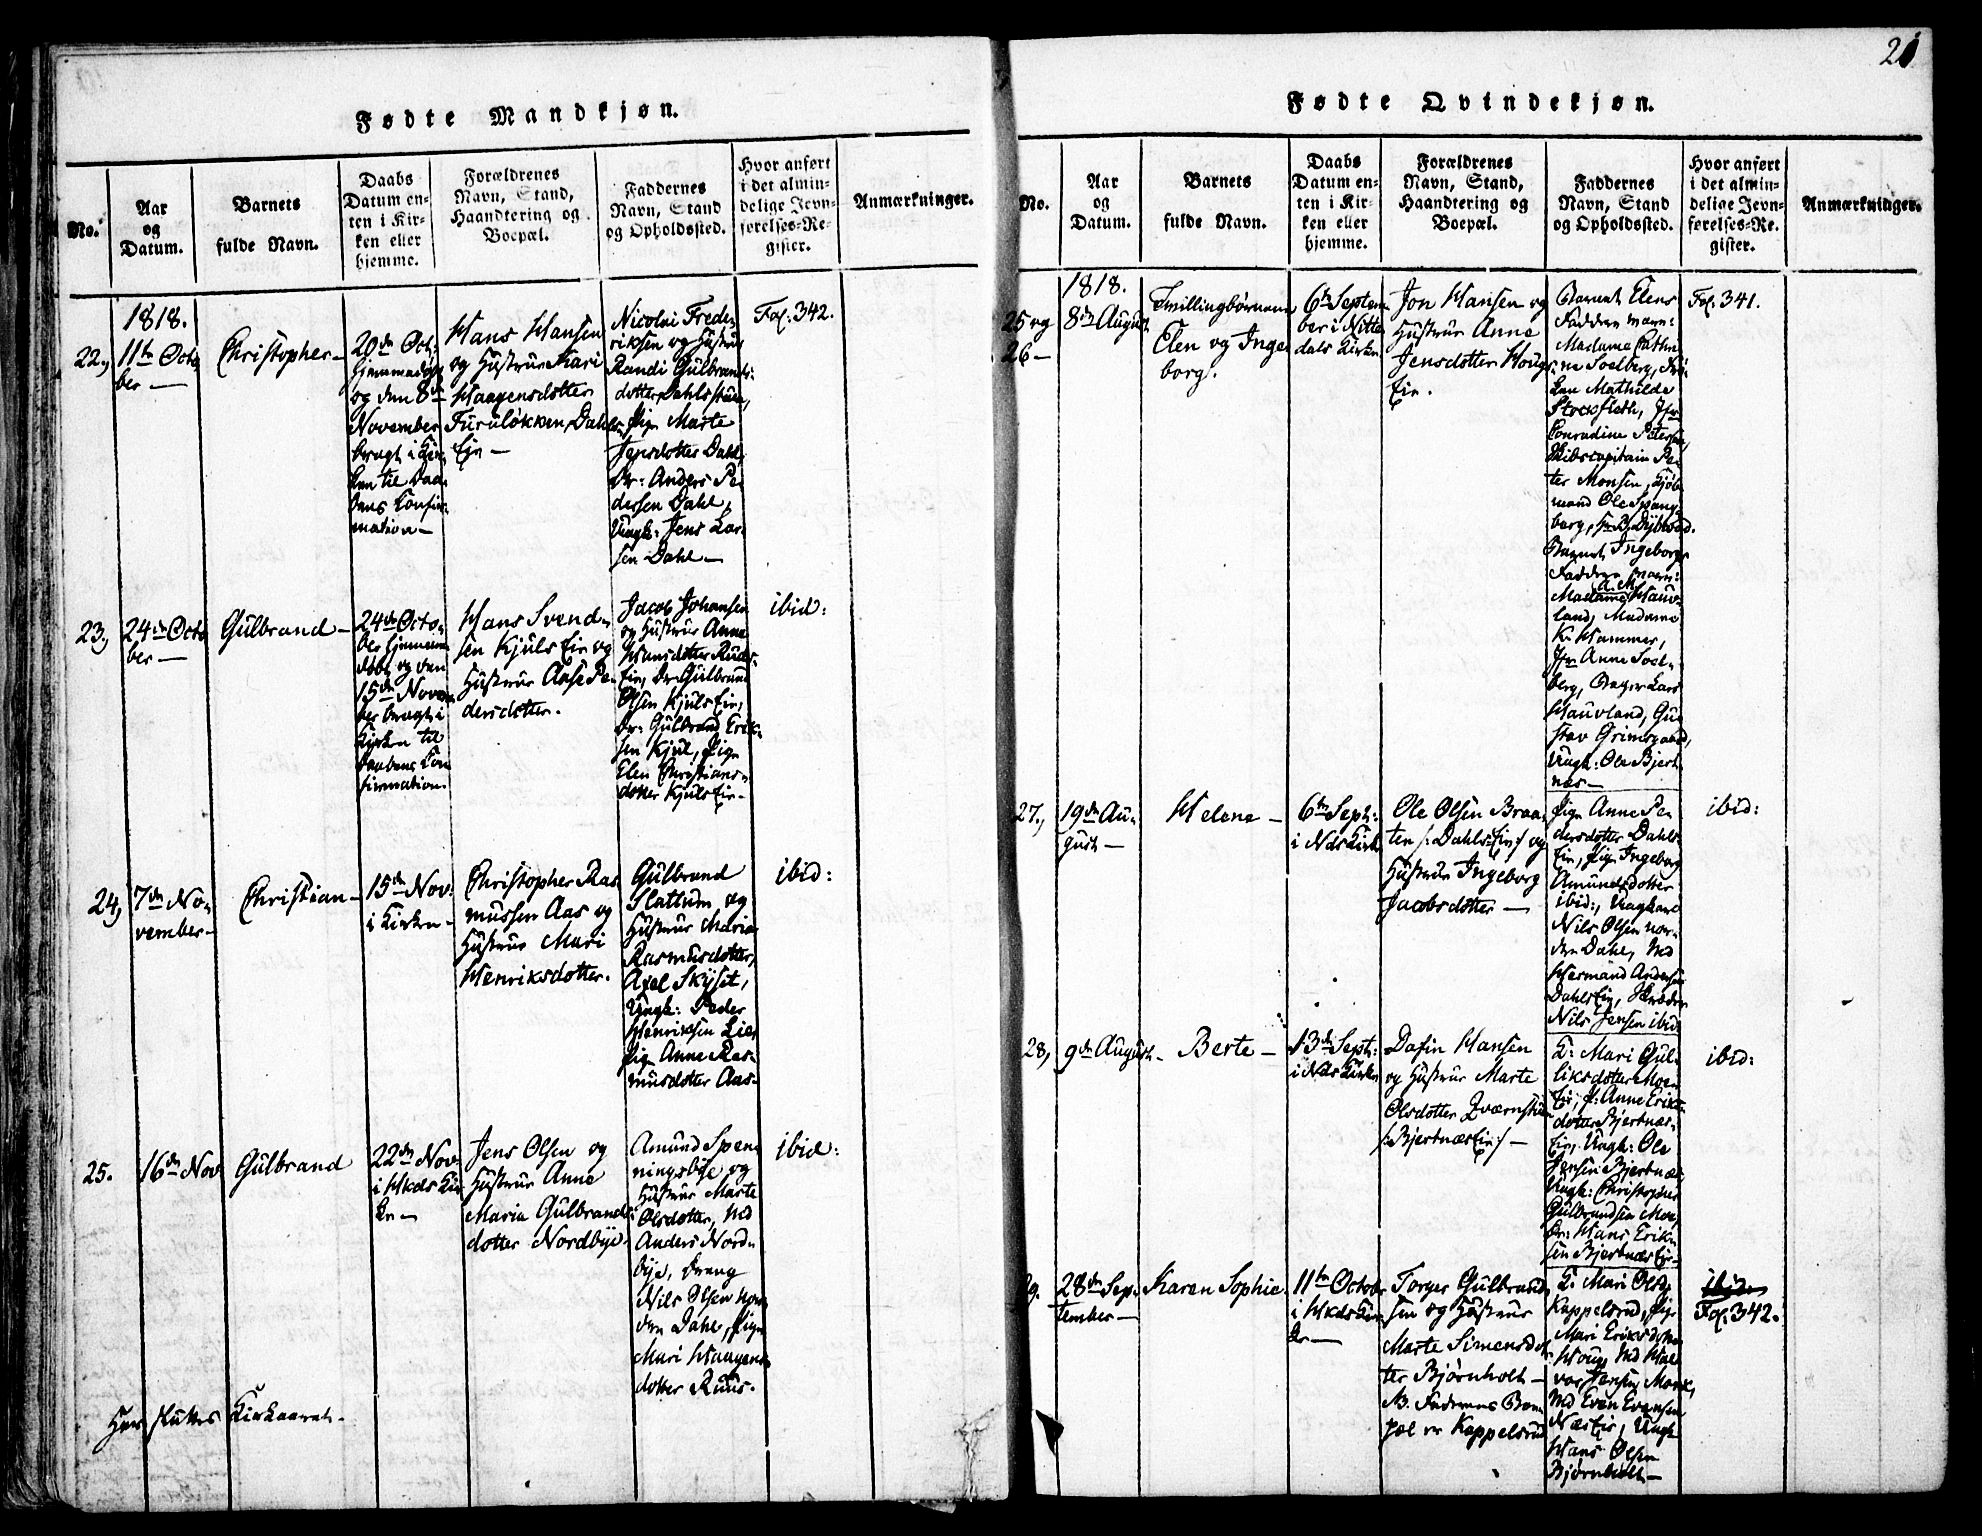 Fødte Mandkjøn.
No.
Aar
og
Datum.
Barnets
fulde Navn.
Daabs
Datum en-
ten i Kir-
ken eller
hjemme.
Forældrenes
Navn, Stand,
Haandtering og
Boepæl.
Faddernes
Navn, Stand
og Opholdssted.
Hvor anført
i det almin-
delige Jevn-
førelses-Re-
gister.
Anmærkninger.
1818.
22.,
11te Octo
ber —
Christopher —
20de Oct:
hjemmedøbt
og den 8de
November
bragt i Kir
ken til Daa
bens Confir
mation —
Hans Hansen
og Hustrue Kari
Haagensdotter
Furuløkken, Dahls
Eie —
Nicolai Frede-
riksen og Hustrue
Randi Gulbrands-
dotter Dahlsstuen,
Pige Marte
Jensdotter Dahl,
Dr: Anders Pe
dersen Dahl,
Ungk: Jens Lar
sen Dahl —
Fol: 342.
23.,
24de Octo
ber —
Gulbrand —
24de Octo-
ber hjemme
døbt og den
15de Novem
ber bragt i
Kirken til
Daabens Con
firmation.
Hans Svend-
sen Kjuls Eie og
Hustrue Anse Pe
dersdotter.
Jacob Johansen
og Hustrue Anne
Hansdotter Ruds-
Eie, Dr: Gulbrand
Olsen Kjuls Eie,
Dr: Gulbrand Erik-
sen Kjul, Pige
Elen Christians-
dotter Kjuls Eie —
ibid:
24,
7de No-
vember —
Christian —
15de Nov:
i Kirken —
Christopher Ras
mussen Aas og
Hustrue Mari
Henriksdotter.
Gulbrand
Slattum og
Hustrue Marie
Rasmusdotter,
Axel Skyset,
Ungk: Peder
Henriksen Lie,
Pige Anne Ras-
musdotter Aas —
ibid:
25.
16de Nov
Gulbrand
22de Nov:
i Hkds Kir
ke —
Jens Olsen og
Hustrue Anne
Maria Gulbrands
dotter Nordbye.
Amund Spen
ningsbye og
Hustrue Marte
Olsdotter, Md
Anders Nord-
bye, Dreng
Nils Olsen nor
dre Dahl, Pige
Mari Haagens
dotter Ruus.
ibid:
Her sluttes Kirkeaaret.
21
Fødte Qvindekjøn.
No.
Aar
og
Datum.
Barnets
fulde Navn.
Daabs
Datum en-
ten i Kir-
ken eller
hjemme.
Forældrenes
Navn, Stand,
Haandtering og
Boepæl.
Faddernes
Navn, Stand
og Opholdssted.
Hvor anført
i det almin-
delige Jevn-
førelses-Re-
gister.
Anmærkninger.
1818.
25 og
26 —
8de August
Tvillingbørnene
Elen og Inge
borg.
6te Septem
ber i Nitte
dals Kirke
Jon Hansen og
Hustrue Anne
Jensdotter Houg-
Eie.
Barnet Elens
Faddere være:
Madame Cathri
ne Soelberg, Frø
ken Mathilde
Stocfleth, Jfr
Conradine Petersen,
Skibscapitain Pe
ter Monsen, Kjøb
mand Ole Spang
berg, Dybwad.
Barnet Ingeborgs
Faddere være:
Madame A. M. Hauv-
land, Madame
K. Hammer,
Jfr Anne Soel-
berg, Lars
Hauvland, Gu
stav Grimsgaard,
Ungk: Ole Bjert
næs —
Fol: 341.
27.,
19de Au-
gust —
Helene —
6te Sept:
i Nds Kirke
Ole Olsen Braa-
ten /: Dahls Eie :/ og
Hustrue Ingeborg
Jacobsdotter —
Pige Anne Pe
dersdotter Dahls
Eie, Pige Ingeborg
Amundsdotter
ibid:, Ungkarl
Nils Olsen nor-
dre Dahl, Md
Hermand Andersen
Dahls Eie, Skræder
Nils Jensen ibid:
ibid:
28,
9de August —
Berte —
13de Sept:
i Nds Kirke
Dafin Hansen
og Hustrue Marte
Olsdotter Qværnstuen
/: Bjertnæs Eie :/ —
K: Mari Gul-
liksdotter Moe
Eie, P: Anne Eriks
dotter Bjertnæs-
Eie, Ungk: Ole
Jensen Bjertnæs,
Ungk: Christopher
Gulbrandsen Moe,
Dr: Hans Erik-
sen Bjertnæs Eie —
ibid:
29.
28de Sep-
tember —
Karen Sophie —
11te Octobr
i Hkds Kir
ke —
Torger Gulbrand
sen og Hustrue
Marte Simensdot
ter Bjørnholt —
NB. Faderens Boe
pæl er Kappelsrud
K: Mari Olsd.
Kappelsrud, Pige
Mari Eriksdotter
Houg, Md Hal
vor Jensen Moe,
Md Even Evensen
Næs Eie, Ungk.
Hans Olsen
Bjørnholt —
ibid:
Fol: 342.